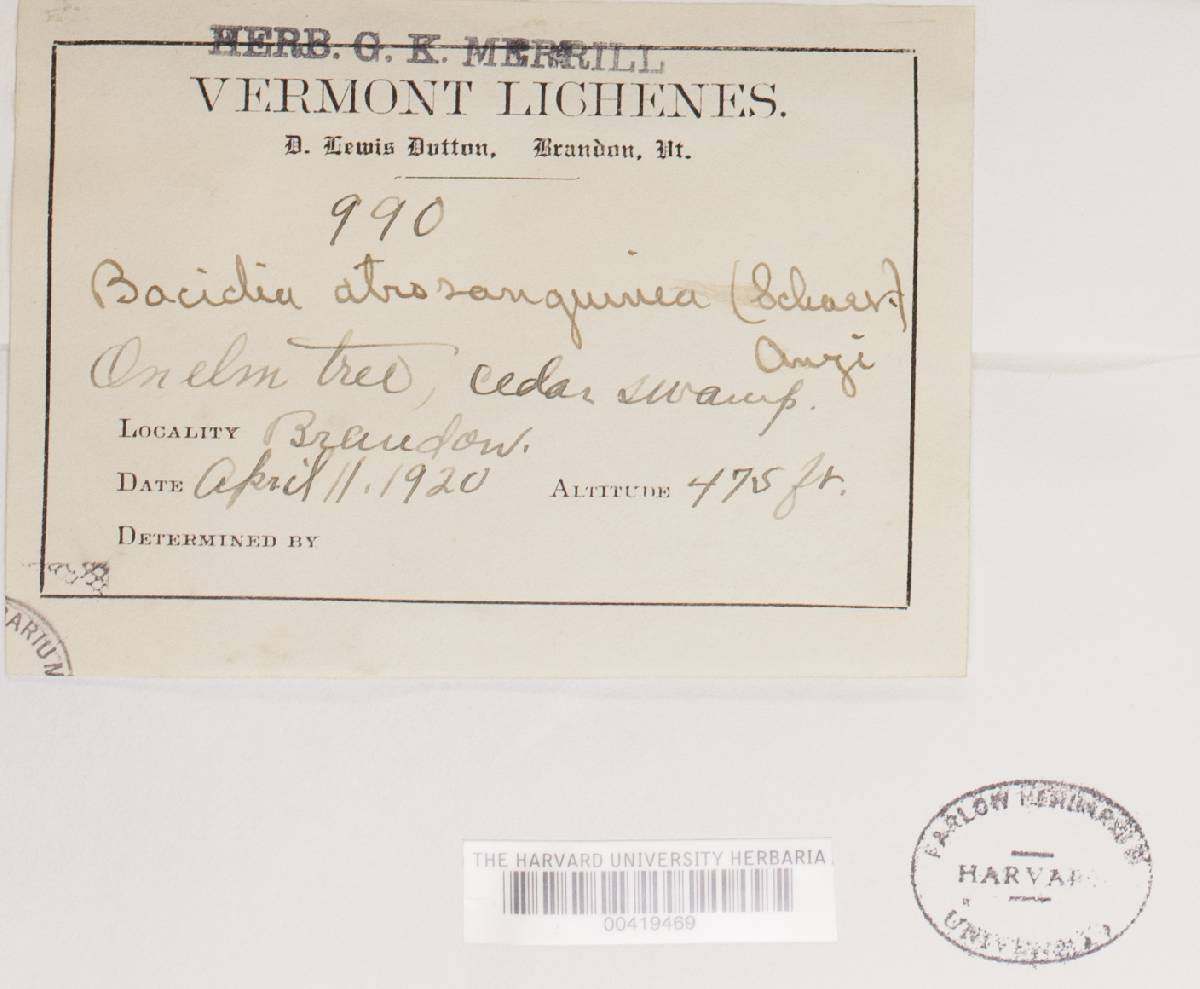 HERB. G. K. MERRILL
VERMONT LICHENES.
D. Lewis Dutton, Brandon, Vt.
990
Bacidia atrosanguinea (Schaer.)
Anzi
On elm tree, cedar swamp.
LOCALITY Brandon.
DATE April 11. 1920 ALTITUDE 475 ft.
DETERMINED BY
ARIUM
THE HARVARD UNIVERSITY HERBARIA
00419469
FARLOW
HARVARD